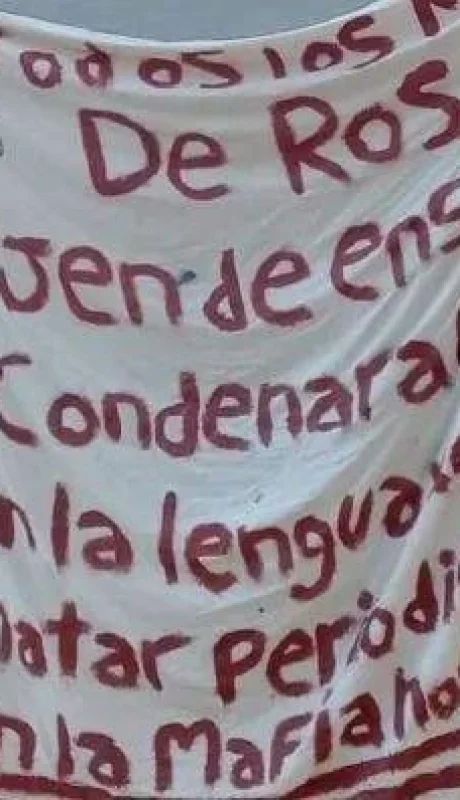 odos los
De Ros
Jen de ens
Condenara
n la lengua
atar Periodi
n la Mafia no